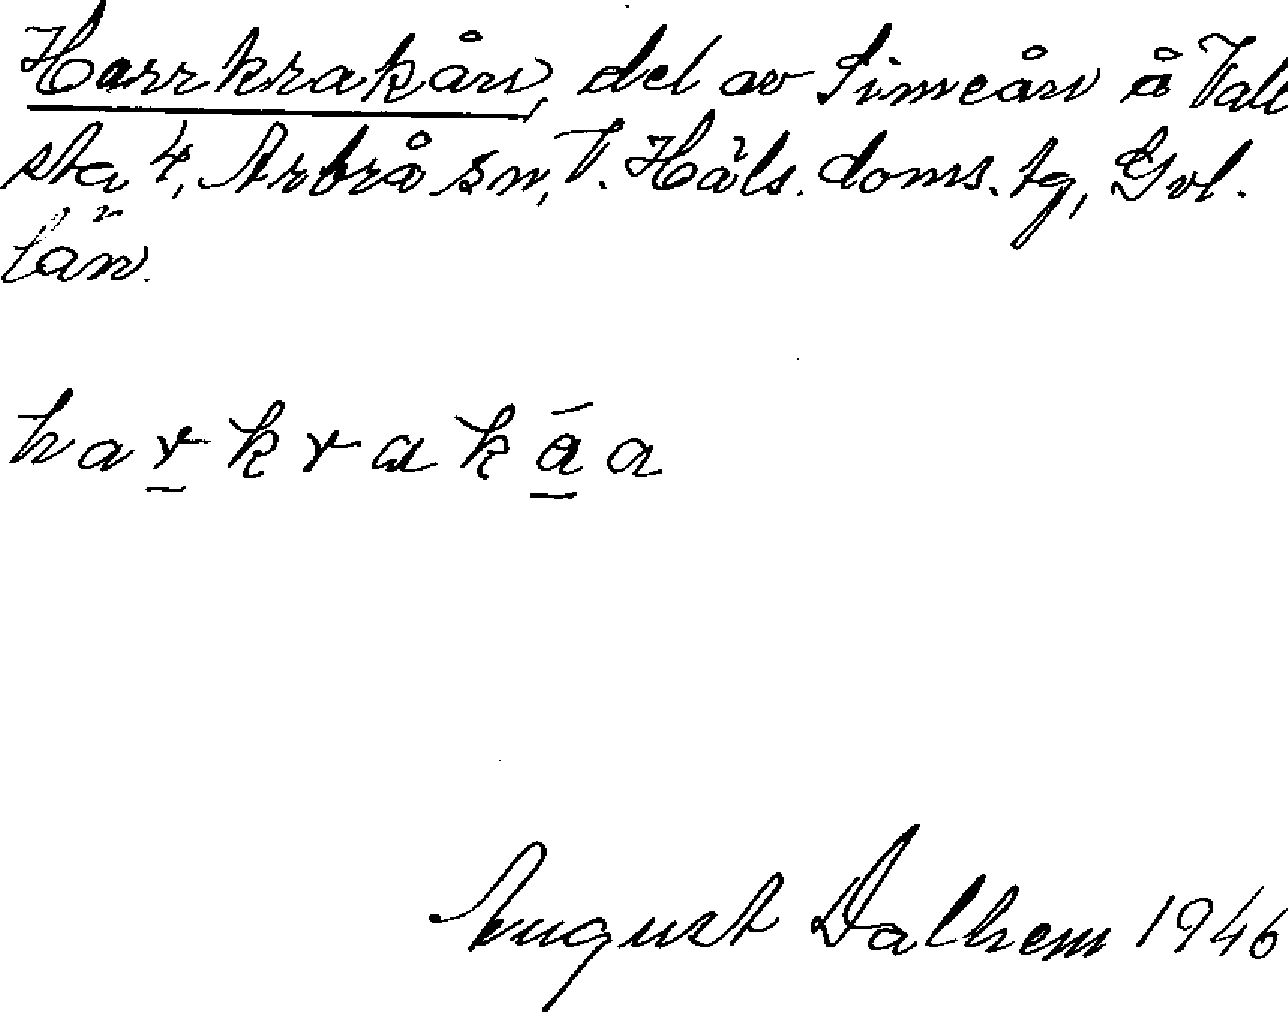 Harrkrakån, del av Simeån å Vall
sta 4, Arbrå sn, V. Häls. doms. tg, Gvl.
län.
harkrakåa
August Dalhem 1946